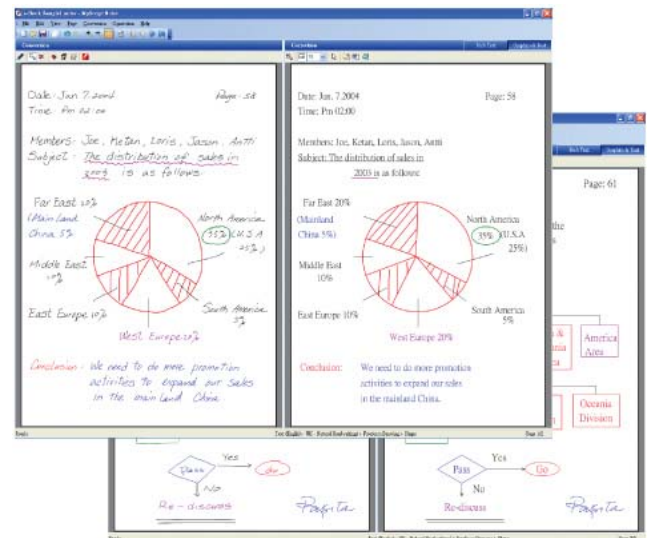 Date: Jan 7. 2004 Page: 58
Time: Pm 02:00
Members: Joe, Ketan, Loris, Jason, Antti
Subject: The distribution of sales in
2003 is as follows:
Far East 20%
(Mainland
China 5%
North America
35% (U.S.A
25%)
Middle East
10%
East Europe 10%
South America
5%
West Europe 20%
Conclusion: We need to do more promotion
activities to expand our sales
in the mainland China.
Date: Jan. 7.2004 Page: 58
Time: Pm 02:00
Members: Joe, Ketan, Loris, Jason, Antti
Subject: The distribution of sales in
2003 is as follows:
Far East 20%
(Mainland
China 5%)
North America
35% (U.S.A
25%)
Middle East
10%
East Europe 10%
South America
5%
West Europe 20%
Conclusion: We need to do more promotion
activities to expand our sales
in the mainland China.
Page: 61
the
America
Area
Oceania
Division
Pass Yes Go
No
Re-discuss
Pass Yes Go
No
Re-discuss